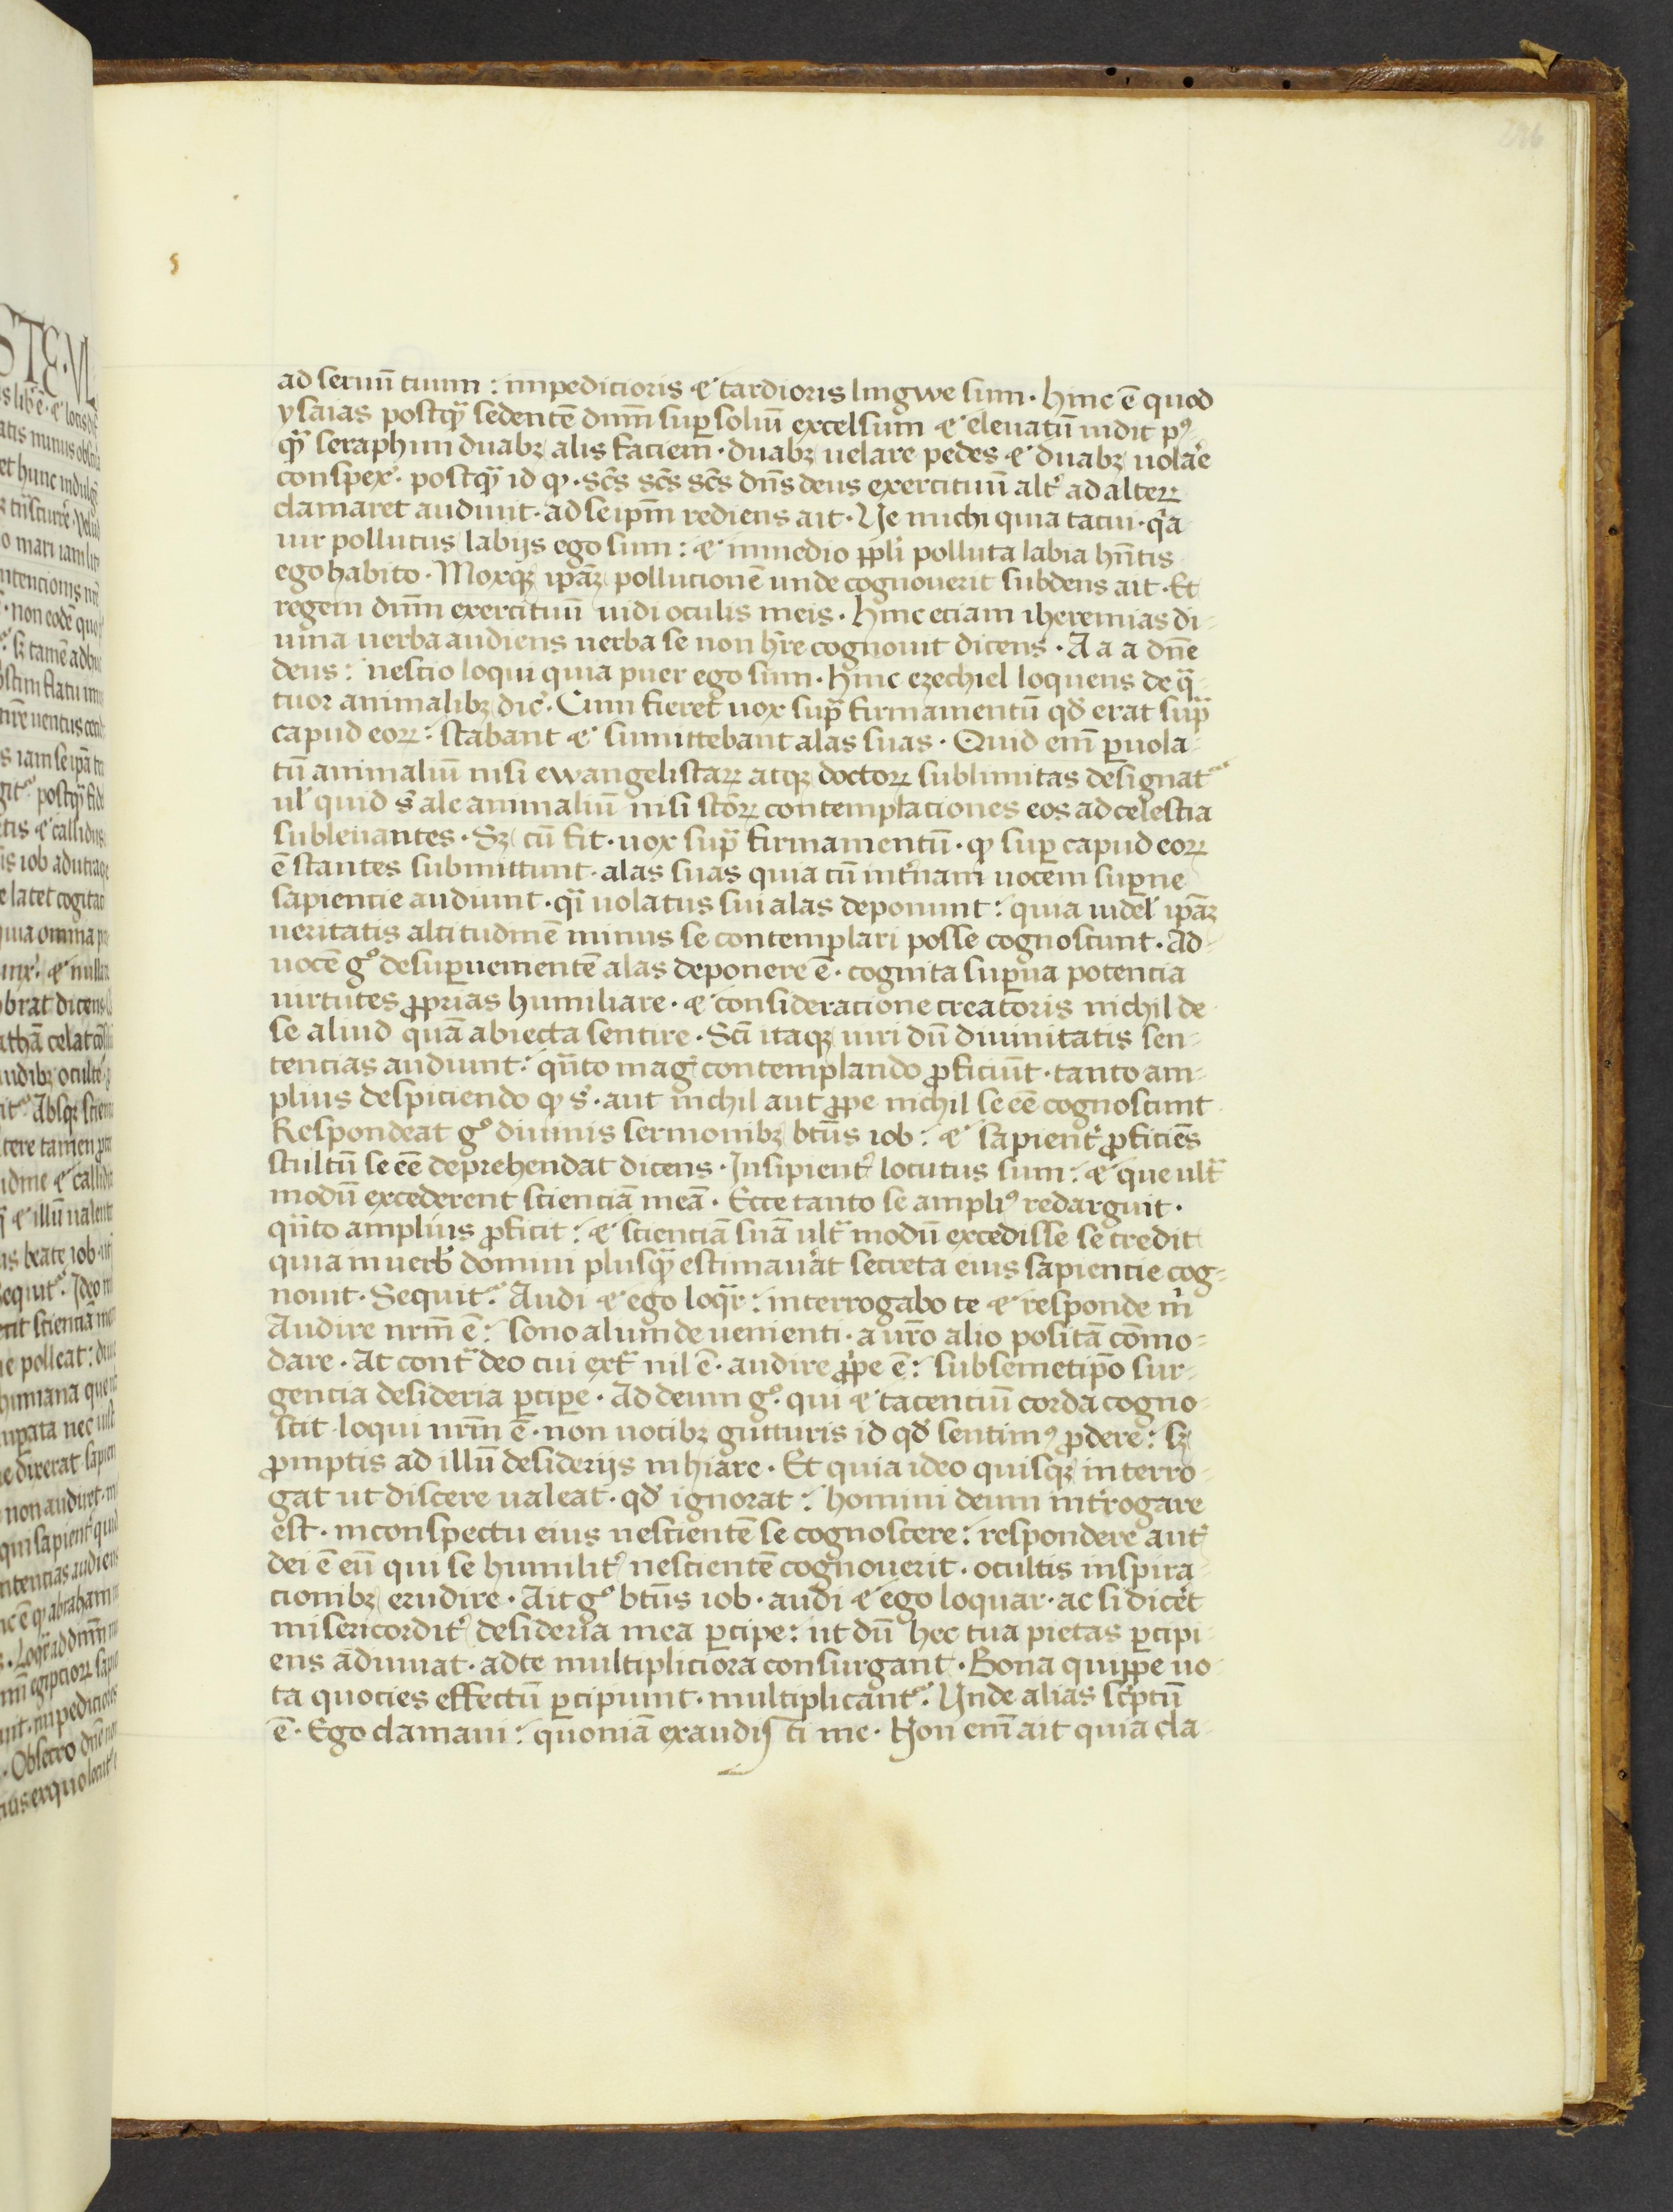 ad seruū tuum : impedicioris et tardioris lingwe sum · Hinc ē quod
ysaias postqͣ sedentē dnm̄ suꝑ soliū excelsum et eleuatū uidit pꝰ
qͣ seraphim duabꝫ alis faciem · duabꝫ uelare pedes et duabꝫ uola͛e
conspex͛ · postqͣ id ꝙ · sc̄s sc̄s sc̄s dn̄s deus exercituū alt͛ ad alterꝝ
clamaret audiuit · ad seip̄m rediens ait · Ve michi quia tacui · qͥa
uir pollutus labijs ego sum : et in medio ppl̄i polluta labia hn̄tis
ego habito · Moxqꝫ ip̄aꝫ pollucionē unde cognouerit subdens ait · Et
regem dnm̄ exercituū uidi oculis meis · Hinc eciam iheremias di-
uina uerba audiens uerba se non hr̄e cognouit dicens · A a a dn̄e
deus : nescio loqui quia puer ego sum · Hinc ezechiel loquens de qͣ-
tuor animalibꝫ dic͛ · Cum fieret uox supͣ firmamentū qd̄ erat supͣ
capud eoꝝ : stabant et sumittebant alas suas · Quid em̄ ꝑ uola-
tū animaliū nisi ewangelistaꝝ atqꝫ doctoꝝ sublimitas designat᷑
ul̄ quid s͛ ale animaliū nisi sc̄oꝝ contemplaciones eos ad celestia
subleuantes · Sꝫ cū fit · uox supͣ firmamentū · ꝙ suꝑ capud eoꝝ
ē stantes submittunt · alas suas quia cū int͛nam uocem suꝑne
sapiencie audiunt · qͣi uolatus sui alas deponunt : quia uidel͛ ip̄aꝫ
ueritatis altitudinē minus se contemplari posse cognoscunt · Ad
uocē gͦ desuꝑ uenientē alas deponere ē · cognita suꝑna potencia
uirtutes ꝓprias humiliare · et consideracione creatoris nichil de
se aliud quā abiecta sentire · Sc̄i itaqꝫ uiri dū diuinitatis sen-
tencias audiunt : qͣnto mag͛ contemplando ꝓficiūt · tanto am-
plius despiciendo ꝙ s͛ · aut nichil aut ꝓpe nichil se eē cognoscunt
Respondeat gͦ diuinis sermonibꝫ bt̄us iob : et sapient͛ ꝓficiēs
stultū se eē deprehendat dicens · Insipient͛ locutus sum : et que ultͣ
modū excederent scienciā meā · Ecce tanto se ampliꝰ redarguit ·
qͣnto amplius ꝓficit : et scienciā suā ultͣ modū excedisse se credit
quia in uerb͛ domini plusqͣ estimau͛at secreta eius sapiencie cog-
nouit · Sequit᷑ · Audi et ego loqͣr : interrogabo te et responde mͥ
Audire nrm̄ ē : sono aliunde uenienti · aurē alio positā cōmo-
dare · At contͣ deo cui extͣ nil ē · audire ꝓpͥe ē : sub semetip̄o sur-
gencia desideria ꝑciꝑe · Ad deum gͦ · qui et tacenciū corda cogno-
scit loqui nrm̄ ē · non uocibꝫ gutturis id qd̄ sentimꝰ ꝓdere : sꝫ
ꝓmptis ad illū desiderijs inhiare · Et quia ideo quisqꝫ interro-
gat ut discere ualeat · qd̄ ignorat : homini deum int͛rogare
est · in conspectu eius nescientē se cognoscere : respondere aut͛
dei ē eū qui se humilit͛ nescientē cognouerit · ocultis inspira-
cionibꝫ erudire · Ait gͦ bt̄us iob · audi et ego loquar · ac si dic͛et
misericordit͛ desideria mea ꝑcipe : ut dū hec tua pietas ꝑcipi-
ens adiuuat · ad te multipliciora consurgant · Bona quippe uo-
ta quocies effectū ꝑcipiunt · multiplicant᷑ · Unde alias sc͛ptū
ē · Ego clamaui : quoniā exaudisti me · Non em̄ ait quia cla-